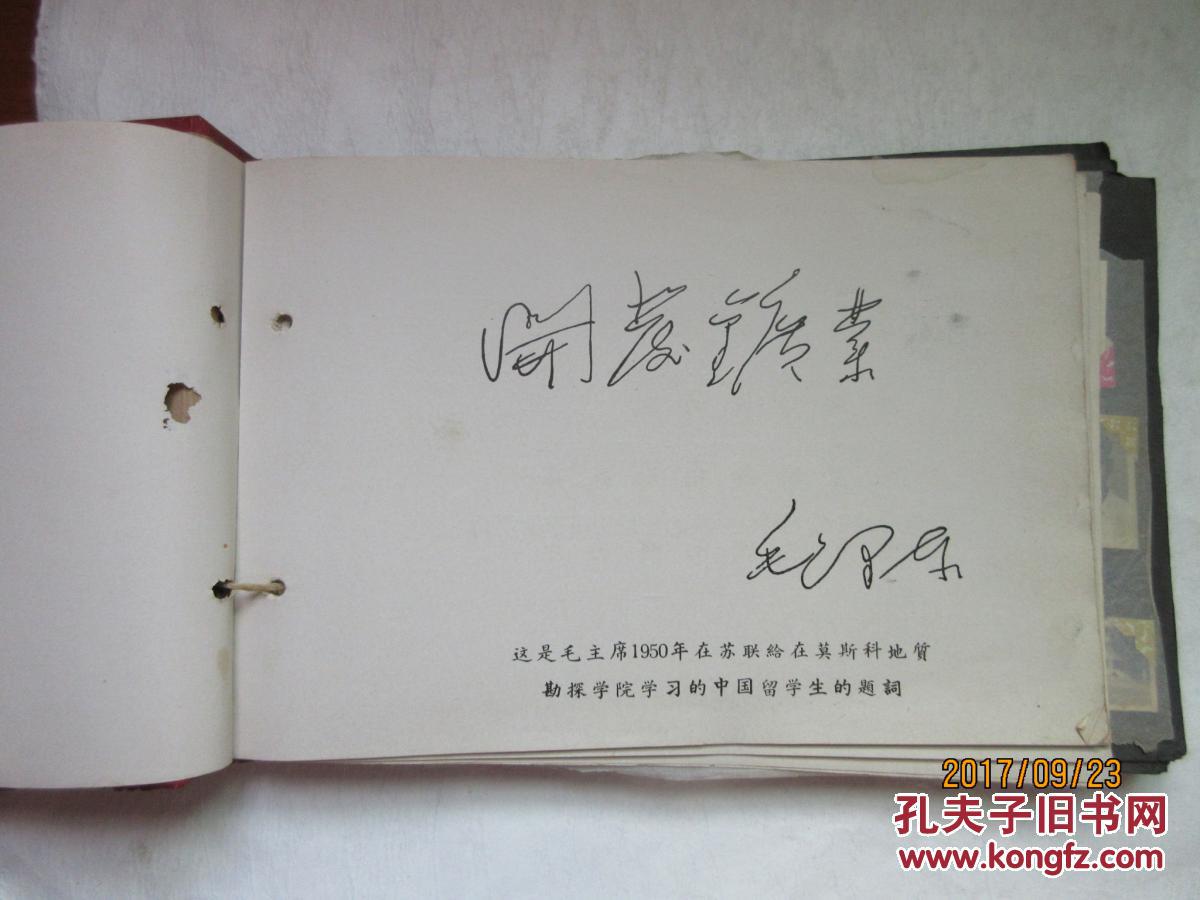 開發鑛業
毛澤东
这是毛主席1950年在苏联給在莫斯科地質
勘探学院学习的中国留学生的題詞
2017/09/23
孔夫子旧书网
www.kongfz.com